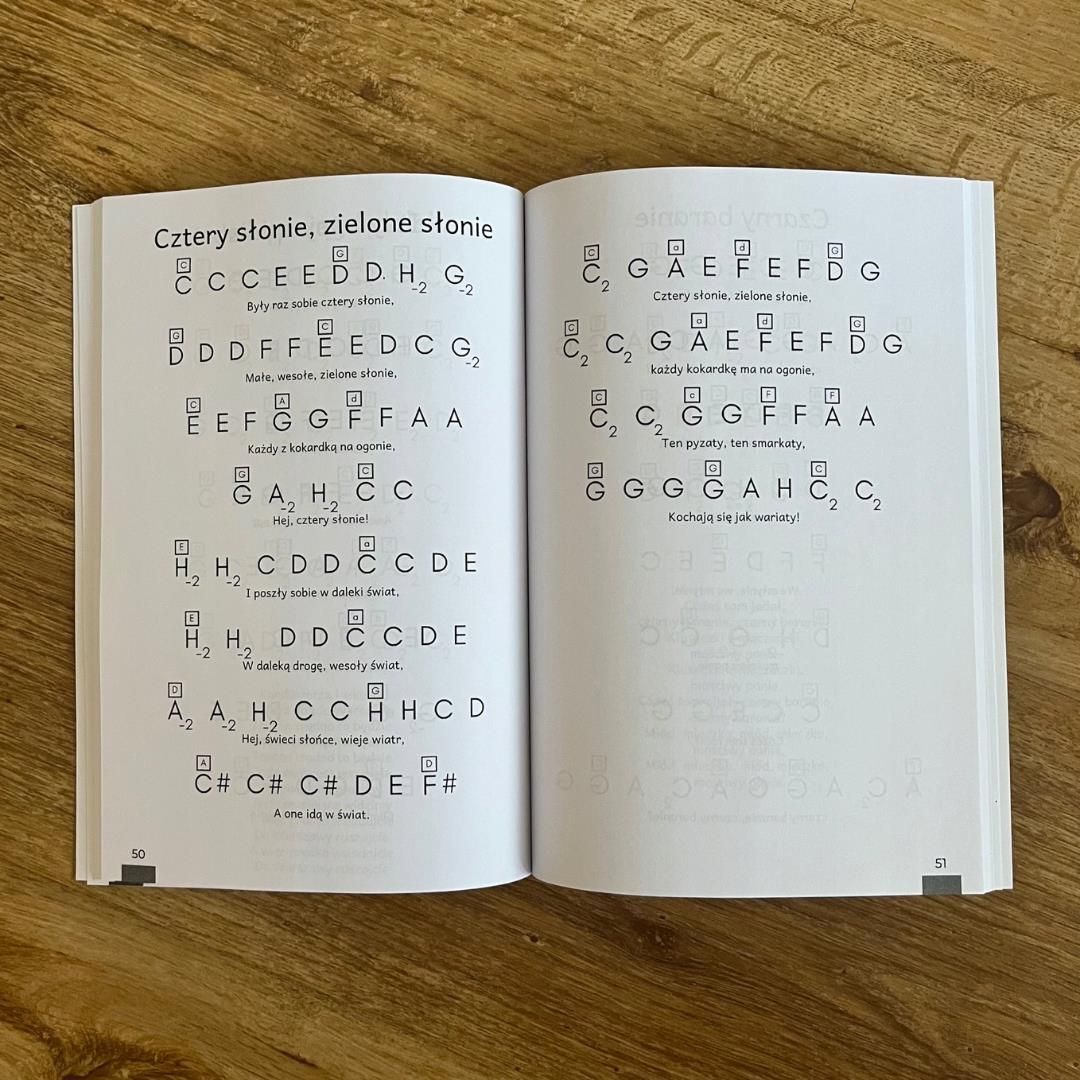 Cztery słonie, zielone słonie
C G
C C C E E D D. H-2 G-2
Były raz sobie cztery słonie,
G C
D D D F F E E D C G-2
Małe, wesołe, zielone słonie,
C A d
E E F G G F F A A
Każdy z kokardką na ogonie,
G C
G A-2 H-2 C C
Hej, cztery słonie!
E a
H-2 H-2 C D D C C D E
I poszły sobie w daleki świat,
E a
H-2 H-2 D D C C D E
W daleką drogę, wesoły świat,
D G
A-2 A-2 H-2 C C H H C D
Hej, świeci słońce, wieje wiatr,
A D
C# C# C# D E F#
A one idą w świat.
50
C a d G
C2 G A E F E F D G
Cztery słonie, zielone słonie,
C a d G
C2 C2 G A E F E F D G
każdy kokardkę ma na ogonie,
C c F F
C2 C2 G G F F A A
Ten pyzaty, ten smarkaty,
G G C
G G G G A H C2 C2
Kochają się jak wariaty!
51